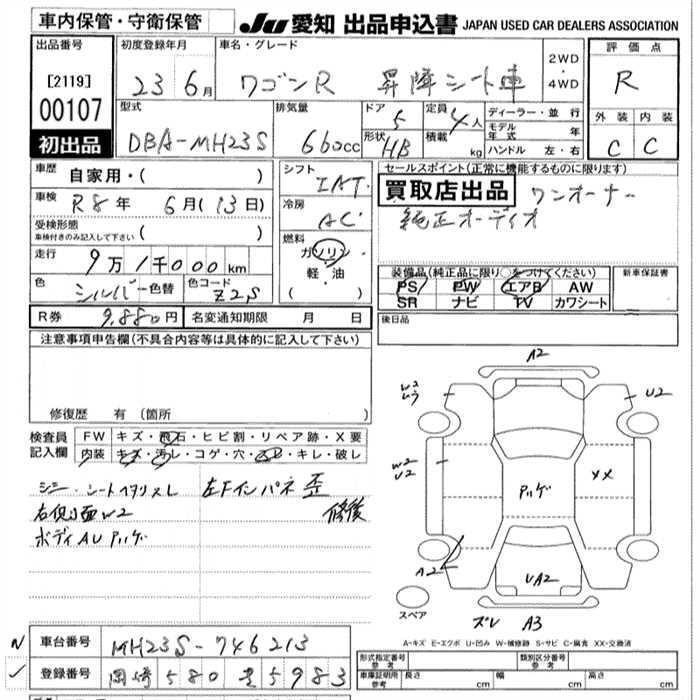 車内保管・守衛保管
JU 愛知 出品申込書 JAPAN USED CAR DEALERS ASSOCIATION
出品番号
[2119]
00107
初出品
初度登録年月
23 6月
車名・グレード
ワゴンR 昇降シート車
2WD
・
4WD
評価点
R
外装 内装
C C
型式
DBA-MH23S
排気量
660cc
ドア
5
定員
4人
形状
HB
積載
kg
ディーラー・並行
モデル年式 年
ハンドル 左・右
車歴
自家用・( )
車検
R8年 6月(13日)
受検形態
車検付きのみ記入して下さい ( )
走行
9万1千000km
色
シルバー 色替
色コード
Z2S
シフト
IAT
冷房
AC
燃料
ガソリン
・
軽・油
( )
セールスポイント(正常に機能するものに限ります)
買取店出品 ワンオーナー
純正オーディオ
装備品(純正品に限り○をつけてください)
PS PW エアB AW
SR ナビ TV カワシート
新車保証書
後日品
R券 9,880円 名変通知期限 月 日
注意事項申告欄(不具合内容等は具体的に記入して下さい)
修復歴 有 (箇所 )
検査員記入欄
FW キズ・飛石・ヒビ割・リペア跡・X要
内装 キズ・汚レ・コゲ・穴・スレ・キレ・破レ
シミ・シートヘタリスレ 左Fインパネ歪
右側面W2 修復
ボディAU アハゲ
A2
W2
U2
W2
U2
アハゲ
XX
A2
UA2
スペア
ズレ A3
A-キズ E-エクボ U-凹み W-補修跡 S-サビ C-腐食 XX-交換済
N 車台番号 MH23S-746213
✓ 登録番号 岡崎 580 5983
形式指定番号
参考
類別区分番号
参考
車庫証明所
参考
長さ cm 幅 cm 高さ cm